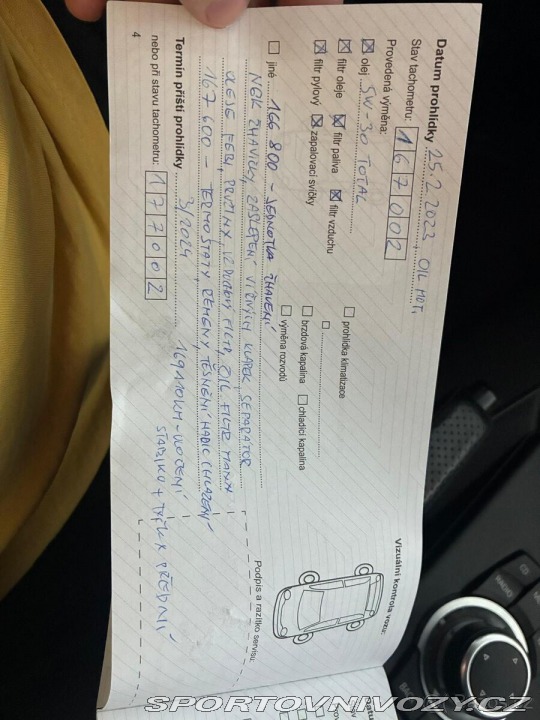 Datum prohlídky 25.2.2023 OIL MOT.
Stav tachometru: 167002
Provedená výměna:
olej 5W-30 TOTAL
filtr oleje filtr paliva filtr vzduchu
filtr pylový zapalovací svíčky
prohlídka klimatizace
brzdová kapalina chladicí kapalina
výměna rozvodů
jiné 166 800 - JEDNOTKA ŽHAVENÍ
ŽHAVIČKY, ZASLEPENÍ VÍŘIVÝCH KLAPEK SEPARÁTOR
OLEJE PRUŽINY, FILTR, OIL FILTR MANN
167 600 - TERMOSTATY ŘEMENY, TĚSNĚNÍ HADIC CHLAZENÍ
Termín příští prohlídky 3/2024
nebo při stavu tachometru: 177002
169110KM - ULOŽENÍ
STABILIZ + TYČKY PŘEDNÍ
4
Vizuální kontrola vozu:
Podpis a razítko servisu:
CD
RADIO
BACK
SPORTOVNIVOZY.CZ